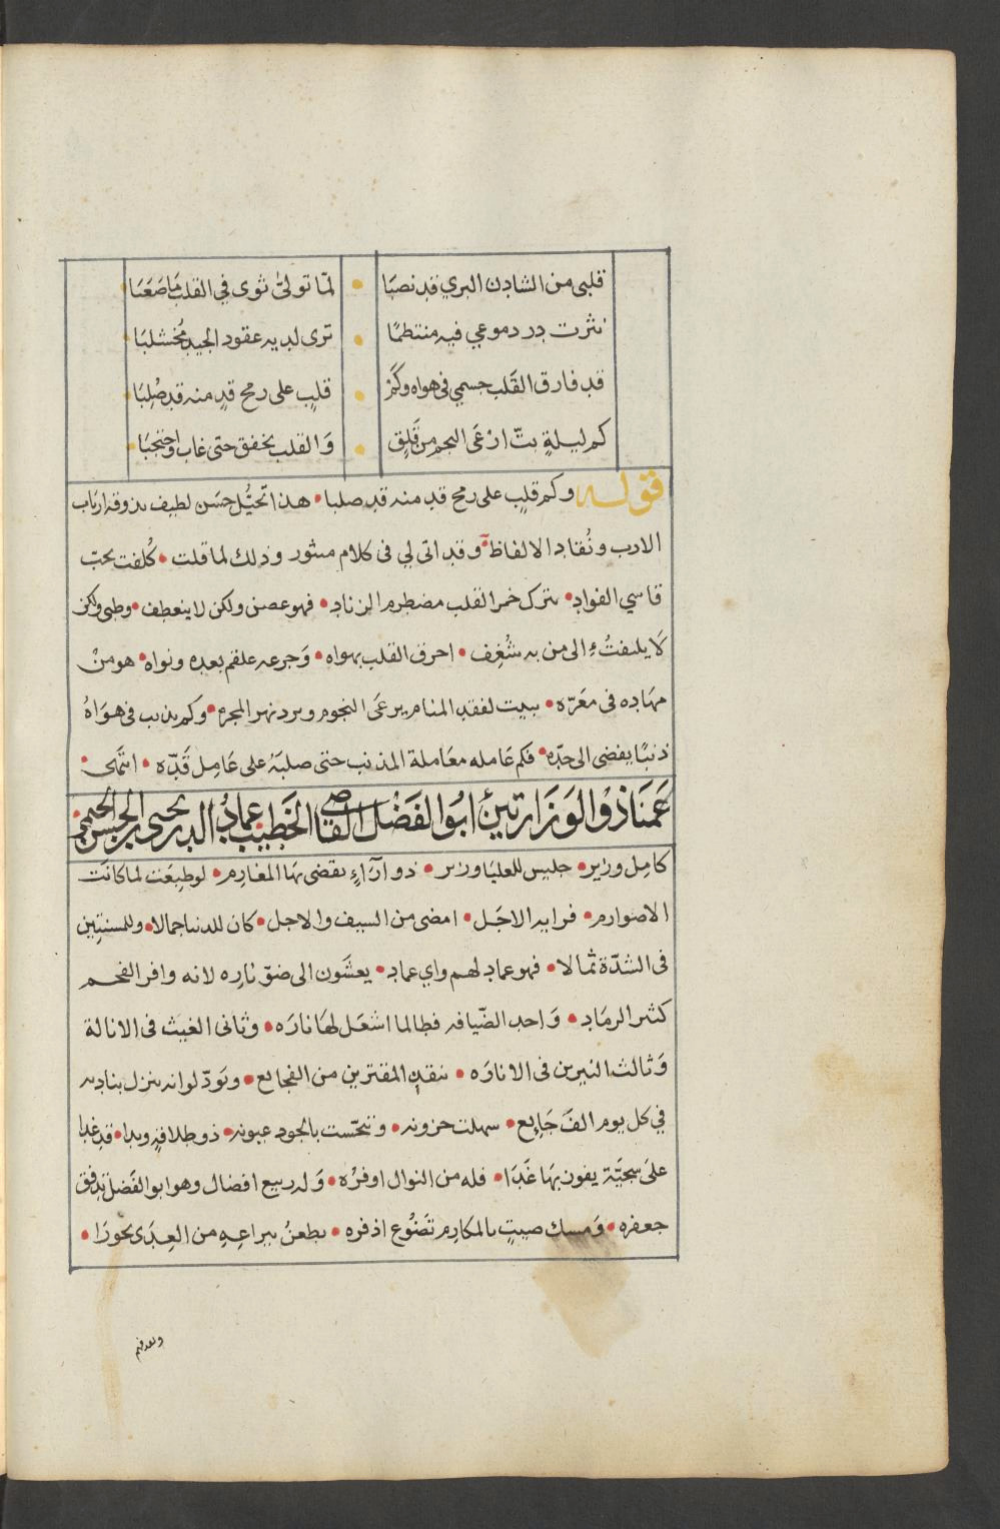 قلبى من الشادن البري قد نصبَا • لمّا تولىٰ ثوى في القلب مَا صَعَبَا
نثرت در دموعي فيه منتظمًا • ترى لديه عقود الجيد مُخْشلبَا
قد فارق القَلب جسمي فى هواه وكَمْ • قلبٍ على رمح قدٍ منه قد صُلِبَا
كم ليلةٍ بتّ ارْعَى النجم من قَلِق • وَالقلب يخفق حتى غاب واحتجبَا
قوله وكم قلبٍ على رمح قد منه قد صلبا • هذا تخيُّل حسَن لطيف يذوقه ارباب
الادب ونُقاد الالفاظ • وقد اتى لي فى كلام منثور وذلك لما قلت • كُلفت بحبّ
قاسي الفواد • يترك خمر القلب مضطرم الزناد • فهو غصن ولكن لا ينعطف • وظبي ولكن
لَا يلتفتُ الى من به شُغِف • احرق القلب بهواه • وَجرعه علقم بعده ونواه • هو منْ
مهَاده فى معَرّه • يبيت لفقد المنام يرعَى النجوم ويرد نهر المجره • وكم يذنب فى هوَاهُ
ذنبًا يفضى الى حدّه • فكم عَامله معَاملة المذنب حتى صلبَهُ على عَامِل قَدّه • انتهى •
عَمنَا ذوُ الوَزَارتينْ ابُوَ الفَضْل القَاضي الخَطِيبْ عمادُ الدين يحيى بن الحسن الحيمي
كامِل وزير • جليس للعليَا وزير • ذو آرَاءٍ يقضى بهَا المغارم • لو طبعَت لما كانَت
الا صوارم • فرايد الاجَل • امضى من السيف والاجل • كان للدنيا جمالا • وللمسنتين
فى الشدّة ثمالا • فهو عماد لهم واي عماد • يعشَون الى ضوّ نارِه لانه وافر الفحم
كثير الرمَاد • وَاحد الضّيافه فطالما اشعَل لهَا نارَه • وثانى الغيث فى الانالة
وَثالث النيرين فى الانارَه • ينقد المقترين من الفجايع • ويَودّ لوانه ينزل بناديه
في كل يوم الفَ جَايع • سهلت حزونه • وتبجّست بالجود عيونه • ذو طلاقةٍ وبدا • قد غدا
علىَ سجيّة يفون بهَا غَدَا • فله من النوال اوفرْه • وَله ربيع افضال وهو ابو الفَضل يتدفق
جعفره • وَمسك صيتٍ بالمكارِم تَضوُّع اذفره • يطعنُ بيراعِهِ من العِدَى نحورًا •